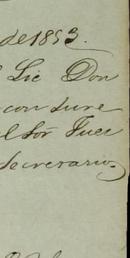 de 1853.
Lic Don
con dure
l Sor Juez
secretario